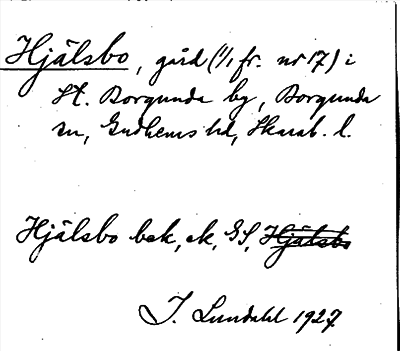 Hjälsbo, gård (1/1 fr. nr 17) i
St. Borgunda by, Borgunda
sn, Gudhems hd, Skarab. l.
Hjälsbo bek, ek, GS, Hjälsbo
I. Lundahl 1927